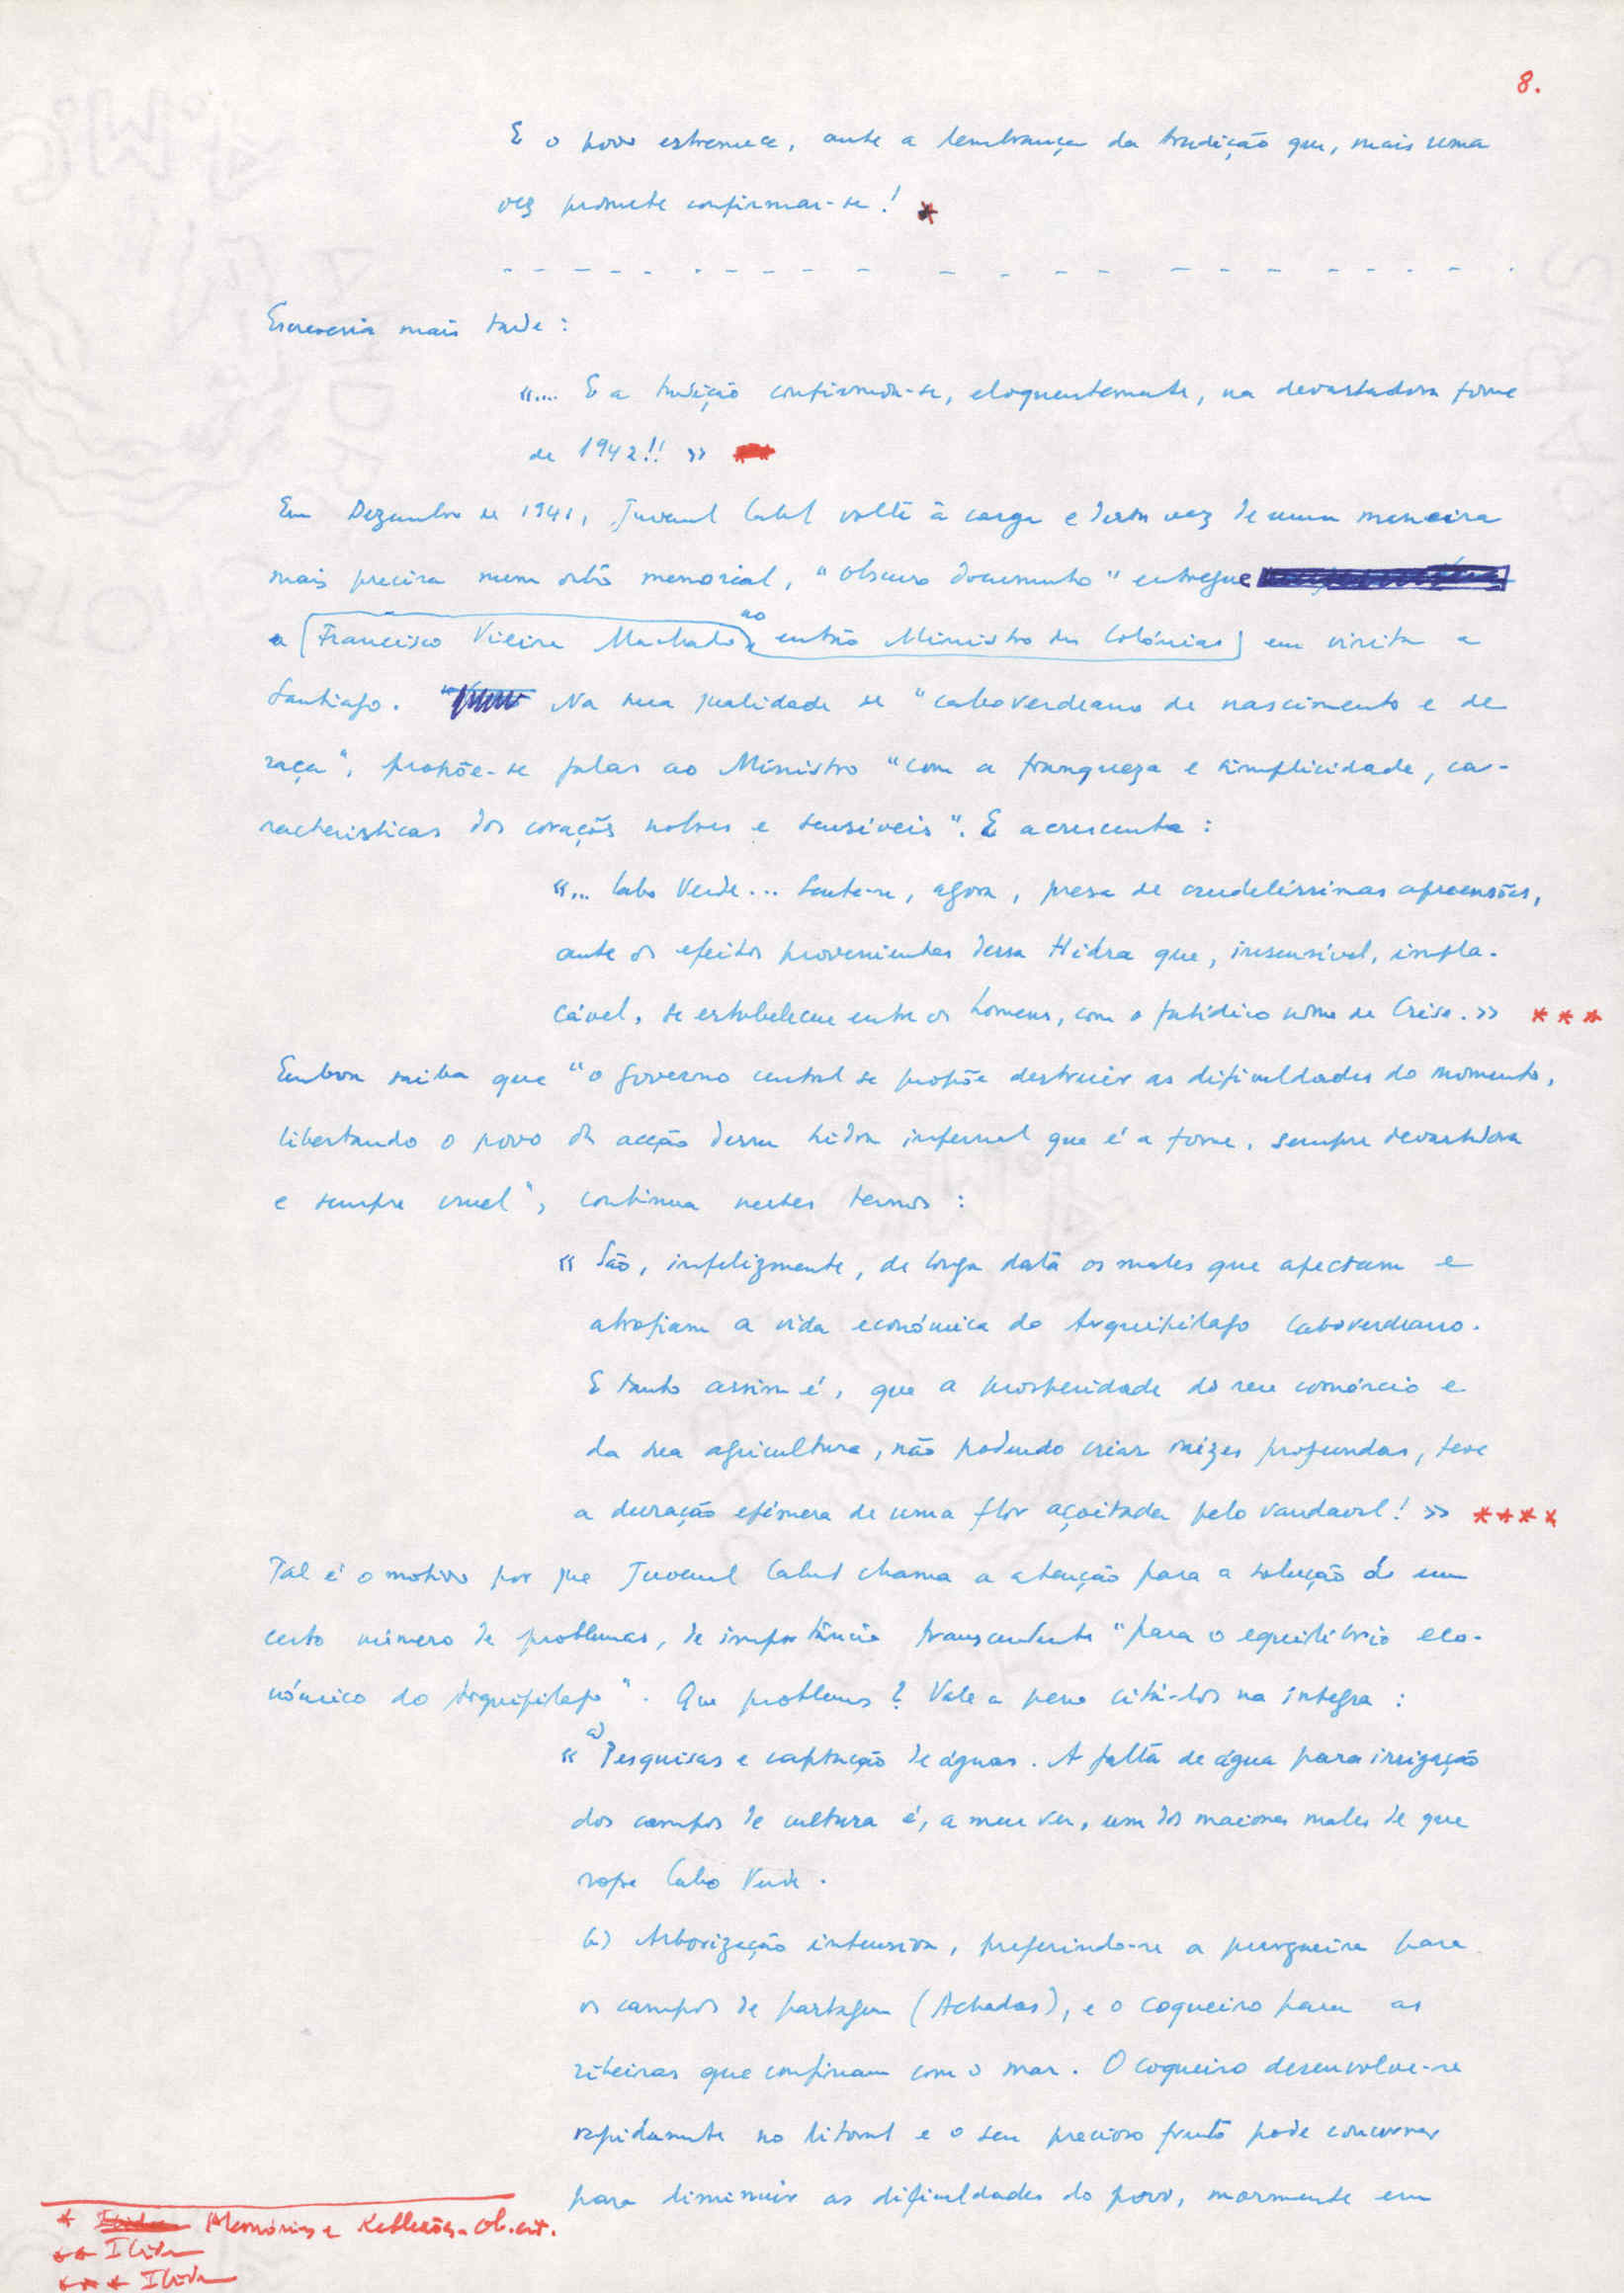 8.
E o povo estremece, ante a lembrança da tradição que, mais uma
vez promete confirmar-se! *
Escreveria mais tarde:
«.... E a tradição confirmou-se, eloquentemente, na devastadora fome
de 1942!! »
Em Dezembro de 1941, Juvenal Cabral volta à carga e desta vez de uma maneira
mais precisa num outro memorial, "obscuro documento" entregue
a [Francisco Vieira Machado, ao então Ministro das Colónias] em visita a
Santiago. Na sua qualidade de "caboverdeano de nascimento e de
raça", propõe-se falar ao Ministro "com a franqueza e simplicidade, ca-
racteristicas dos corações nobres e sensíveis". E acrescenta:
«... Cabo Verde... sente-se, agora, presa de crudelissimas apreensões,
ante os efeitos provenientes dessa Hidra que, insensível, impla-
cável, se estabeleceu entre os homens, com o fatídico nome de Crise. » ***
Embora saiba que "o governo central se propõe destruir as dificuldades do momento,
libertando o povo da acção dessa hidra infernal que é a fome, sempre devastadora
e sempre cruel", continua nestes termos:
« São, infelizmente, de longa data os males que afectam e
atrofiam a vida económica do Arquipélago caboverdeano.
E tanto assim é, que a prosperidade do seu comércio e
da sua agricultura, não podendo criar raizes profundas, teve
a duração efémera de uma flor açoitada pelo vendaval! » ****
Tal é o motivo por que Juvenal Cabral chama a atenção para a solução de um
certo número de problemas, de importância transcendente "para o equilibrio eco-
nómico do Arquipélago". Que problemas? Vale a pena citá-los na íntegra:
« a) Pesquisas e captação de águas. A falta de água para irrigação
dos campos de cultura é, a meu ver, um dos maiores males de que
sofre Cabo Verde.
b) Arborização intensiva, preferindo-se a purgueira para
os campos de pastagem (Achadas), e o coqueiro para as
ribeiras que confinam com o mar. O coqueiro desenvolve-se
rapidamente no litoral e o seu precioso fruto pode concorrer
para diminuir as dificuldades do povo, mormente em
* Memórias e Reflexões. Ob. cit.
** Ibidem
*** Ibidem